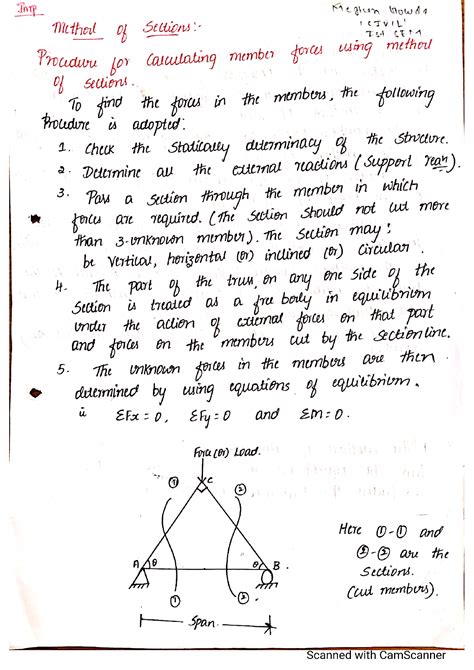 Imp
Meghan Gowda
"CIVIL"
Method of Sections:-
Procedure for Calculating member forces using method
of sections.
To find the forces in the members, the following
Procedure is adopted:
1. Check the Statically determinacy of the structure.
2. Determine all the external reactions (Support rean).
3. Pass a section through the member in which
forces are required. (The section should not cut more
than 3-unknown member). The section may
be vertical, horizontal (or) inclined (or) circular.
4. The part of the truss, on any one side of the
section is treated as a free body in equilibrium
under the action of external forces on that part
and forces on the members cut by the section line.
5. The unknown forces in the members are then
determined by using equations of equilibrium.
ie ΣFx = 0, ΣFy = 0 and ΣM = 0.
Force (or) Load.
① C ②
Here ①-① and
②-② are the
Sections.
(cut members).
A θ θ B
① ②
Span
Scanned with CamScanner